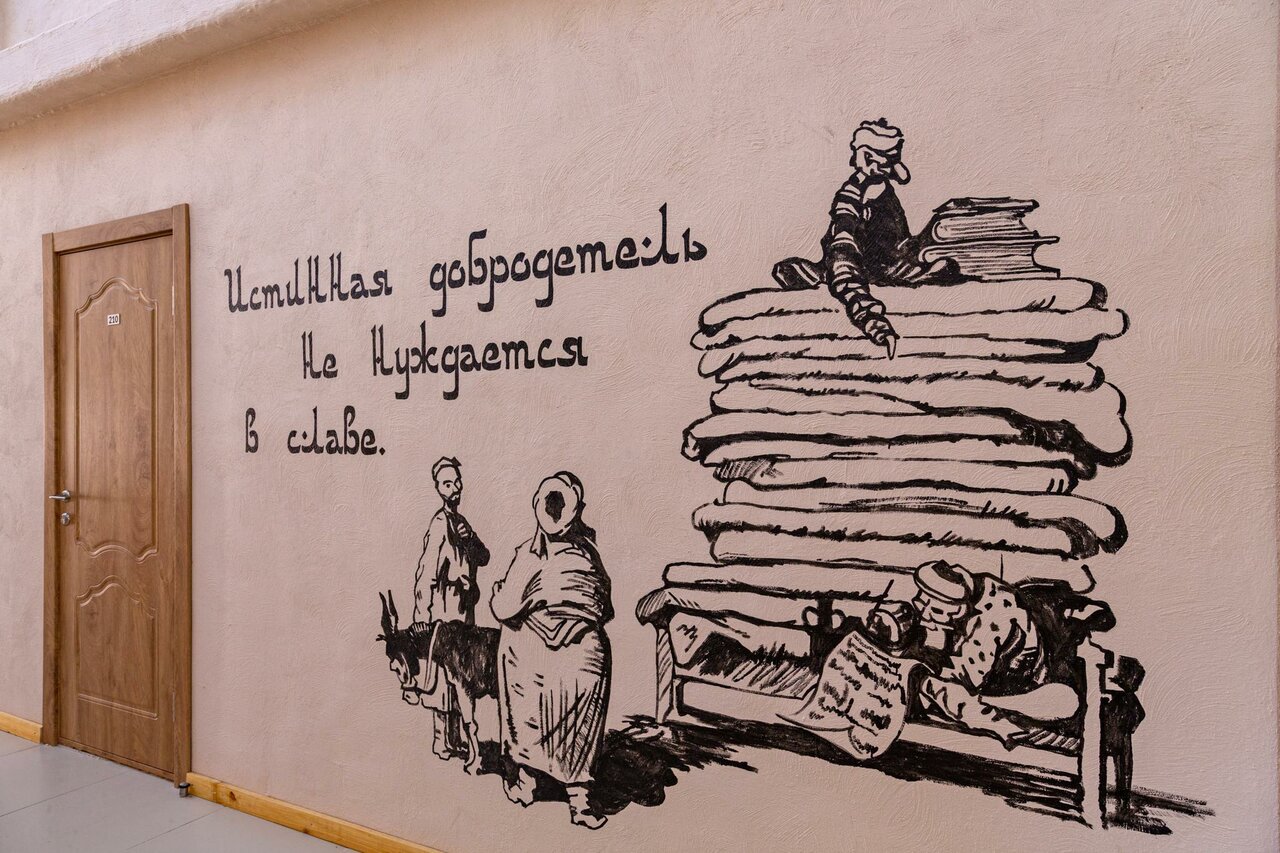 210
Истинная добродетель
не нуждается
в славе.